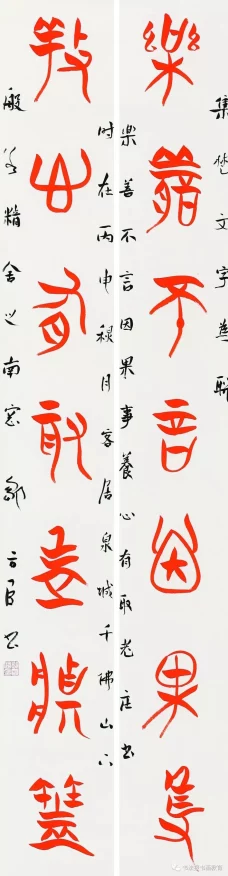 集楚文字為聯
樂善不言因果事
樂善不言因果事養心有取老庄書
时在丙申秋月客居泉城千佛山下
養心有取老莊書
般若精舍之南窓鄒方臣书